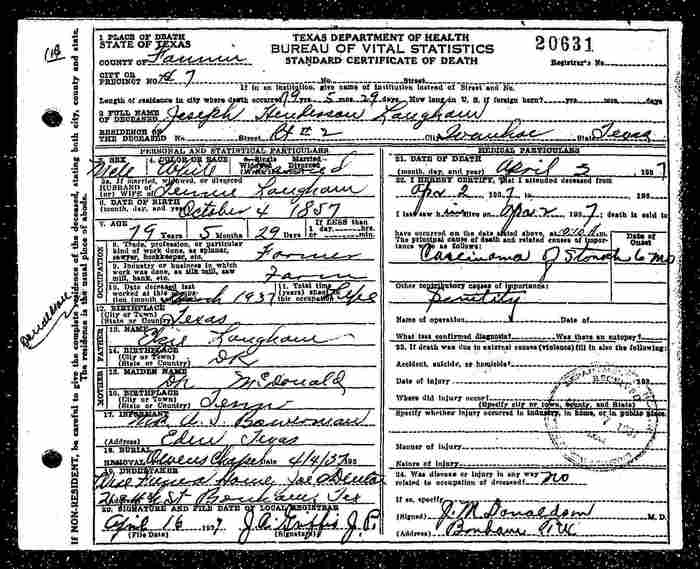 1 PLACE OF DEATH
STATE OF TEXAS
COUNTY OF Fannin
CITY OR PRECINCT NO. # 7
TEXAS DEPARTMENT OF HEALTH
BUREAU OF VITAL STATISTICS
STANDARD CERTIFICATE OF DEATH
20631
Registrar's No.
No. Street
If in an institution, give name of institution instead of Street and No.
Length of residence in city where death occurred 79 yrs. 5 mos. 29 days. How long in U. S. if foreign born? yrs. mos. days
2 FULL NAME OF DECEASED Joseph Henderson Langham
RESIDENCE OF THE DECEASED No. Street Rt # 2 City Ivanhoe State Texas
PERSONAL AND STATISTICAL PARTICULARS
3. SEX Male
4. COLOR OR RACE White
5. Single Married Widowed Divorced
5a. If married, widowed, or divorced HUSBAND OF (or) WIFE OF Jennie Langham
6. DATE OF BIRTH (month, day, and year) October 4 1857
7. AGE 79 Years 5 Months 29 Days If LESS than 1 day, hrs. min.
8. Trade, profession, or particular kind of work done, as spinner, sawyer, bookkeeper, etc. Farmer
9. Industry or business in which work was done, as silk mill, saw mill, bank, etc. Farm
10. Date deceased last worked at this occupation (month and year) March 1937
11. Total time (years) spent in this occupation Life
12. BIRTHPLACE (City or Town) (State or Country) Texas
FATHER
13. NAME Langham
14. BIRTHPLACE (City or Town) (State or Country) DK
MOTHER
15. MAIDEN NAME Dk McDonald
16. BIRTHPLACE (City or Town) (State or Country) Tenn
17. INFORMANT Mrs. A. J. Bowerman
(Address) Edom Texas
18. BURIAL REMOVAL Owens Chapel 4/4/37
19. UNDERTAKER Wise Funeral Home
St Bonham Tex
20. SIGNATURE AND FILE DATE OF LOCAL REGISTRAR
April 16 1937 J. A. Griffis J. P.
(File Date) (Signature)
MEDICAL PARTICULARS
21. DATE OF DEATH (month, day, and year) April 3 1937
22. I HEREBY CERTIFY, that I attended deceased from
Apr 2 1937, to 193
I last saw him alive on Apr 2 1937, death is said to
have occurred on the date stated above, at m.
The principal cause of death and related causes of importance were as follows: Date of Onset
Carcinoma of Stomach 6 mo
Other contributory causes of importance:
Senility
Name of operation Date of
What test confirmed diagnosis? Was there an autopsy?
23. If death was due to external causes (violence) fill in also the following:
Accident, suicide, or homicide?
Date of injury 193
Where did injury occur?
(Specify city or town, county, and State)
Specify whether injury occurred in industry, in home, or in public place.
Manner of injury
Nature of injury
24. Was disease or injury in any way related to occupation of deceased? no
If so, specify
(Signed) J. M. Donaldson M. D.
(Address) Bonham
If NON-RESIDENT, be careful to give the complete residence of the deceased, stating both city, county and state.
The residence is the usual place of abode.
RECEIVED